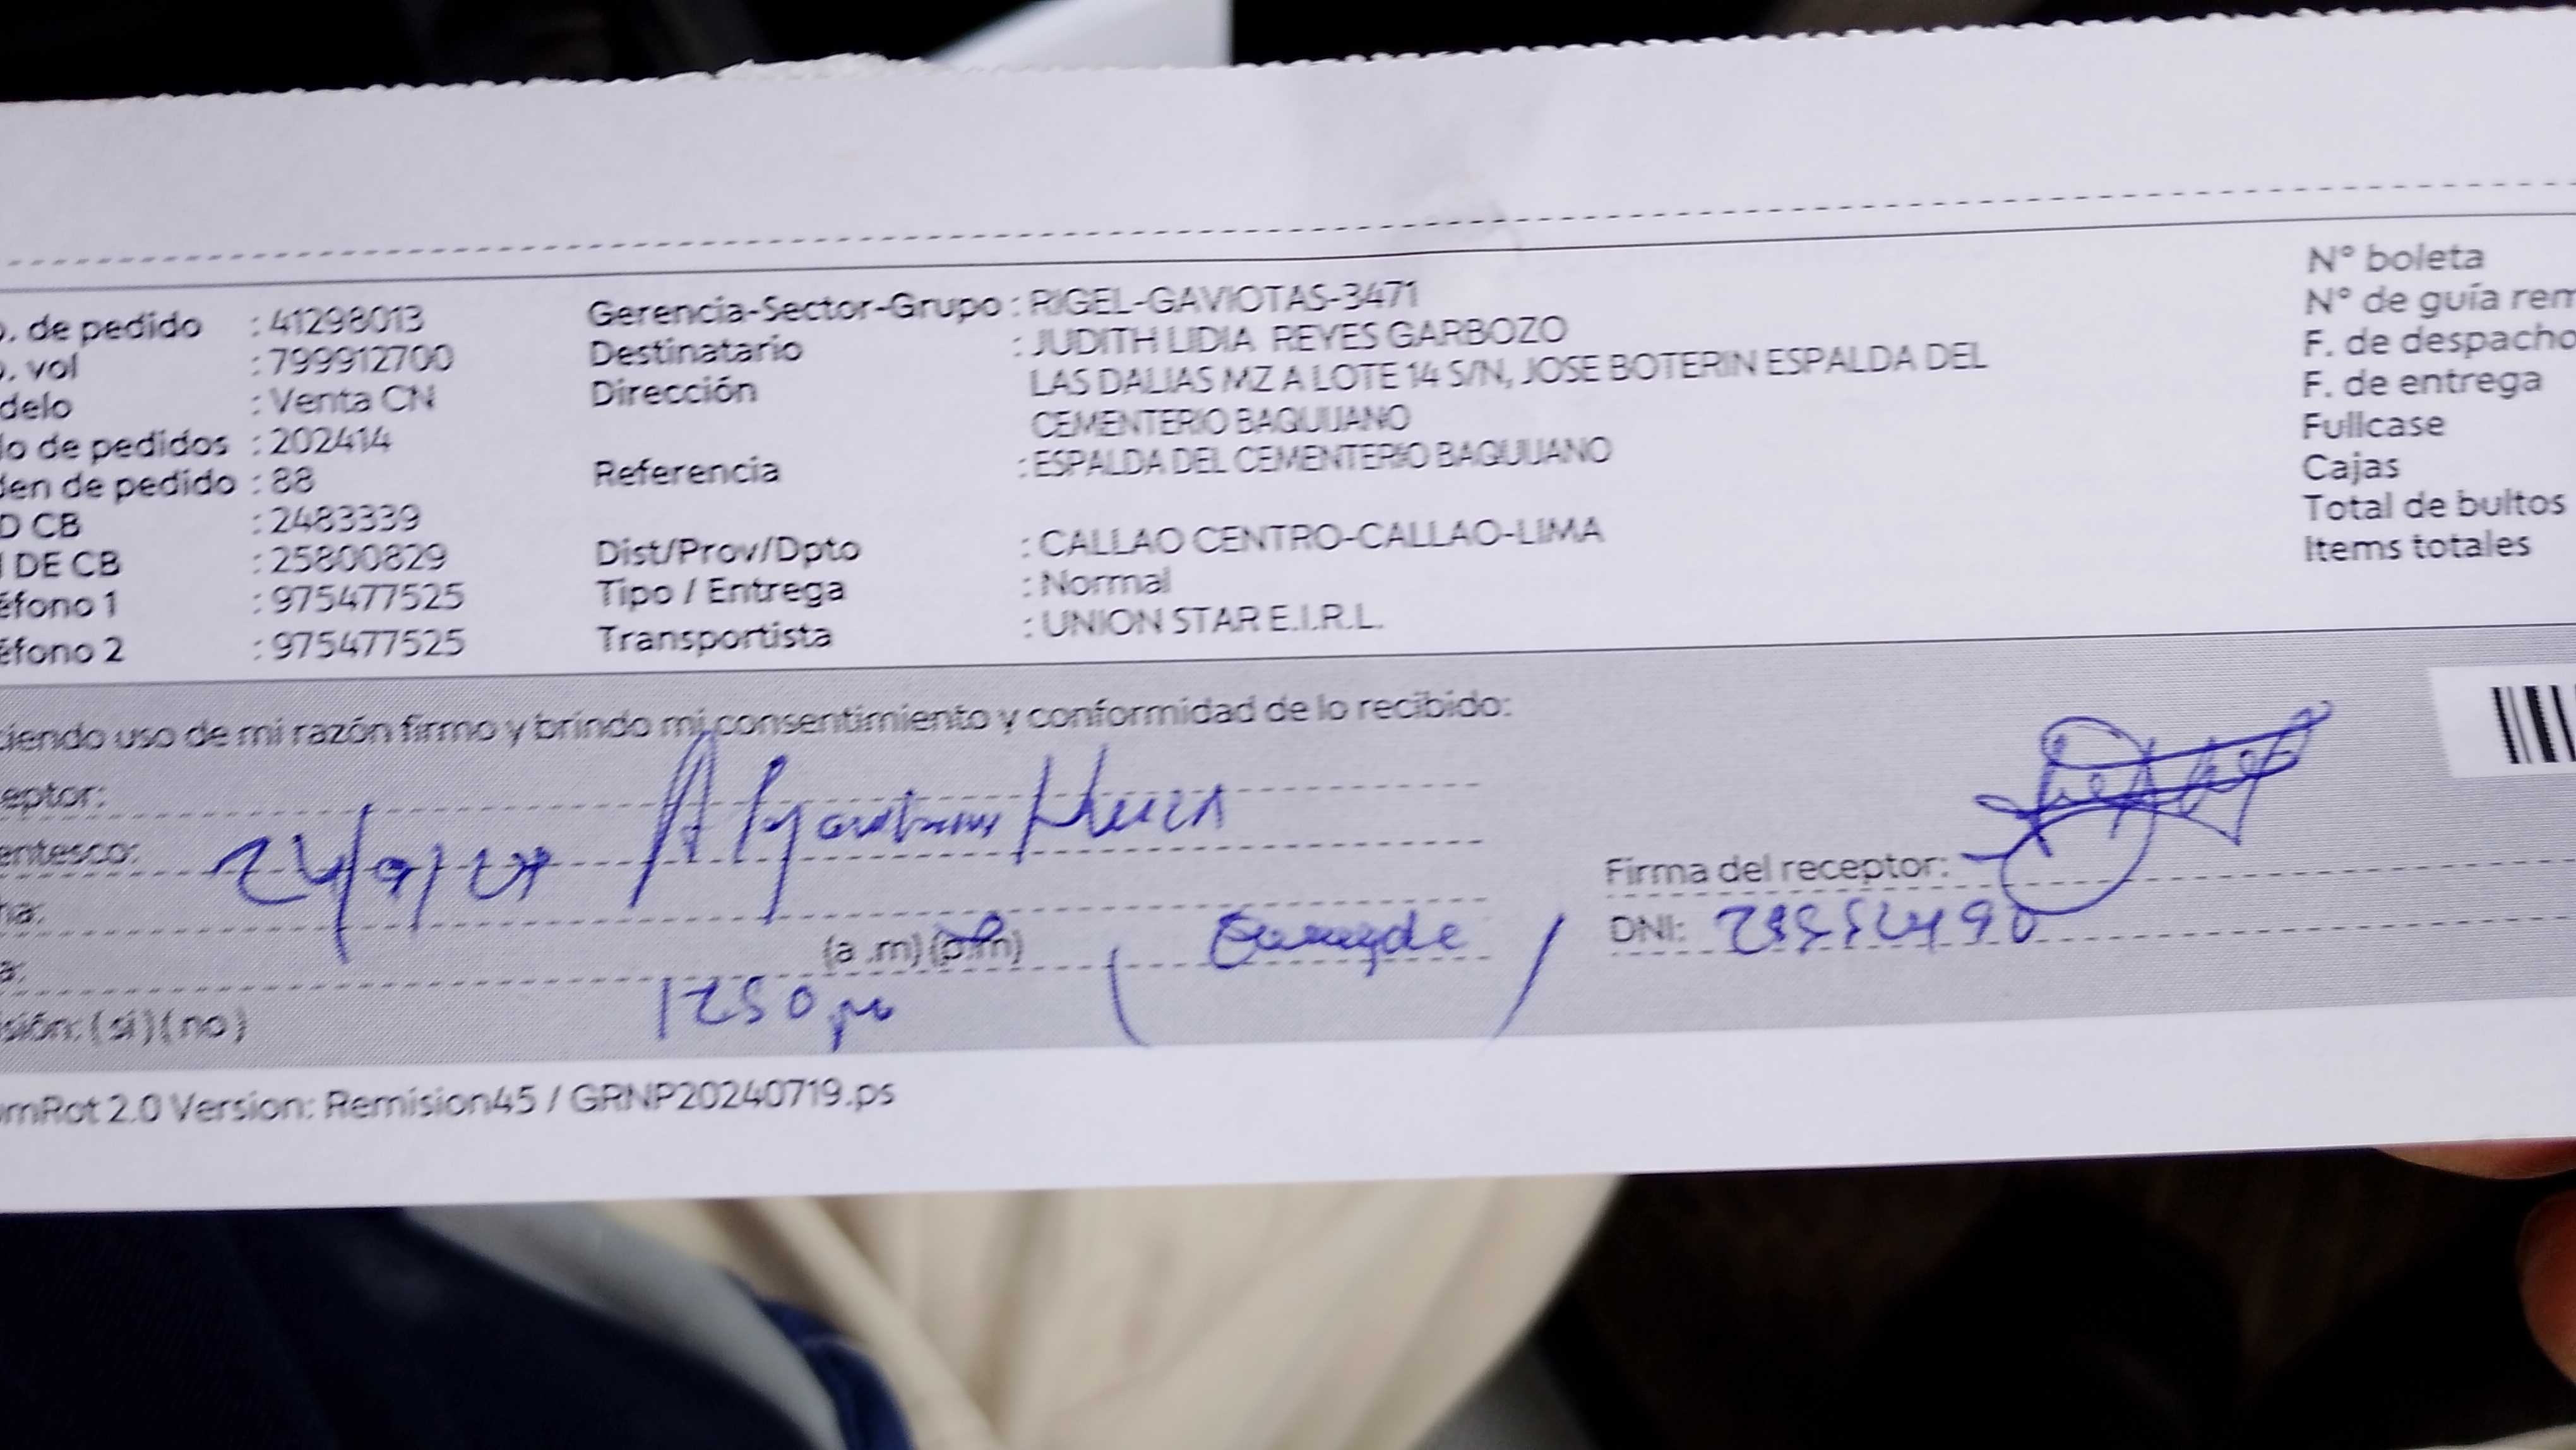 . de pedido : 41298013
. vol : 799912700
delo : Venta CN
o de pedidos : 202414
den de pedido : 88
D CB : 2483339
DE CB : 25800829
éfono 1 : 975477525
éfono 2 : 975477525
Gerencia-Sector-Grupo : RIGEL-GAVIOTAS-3471
Destinatario : JUDITH LIDIA REYES GARBOZO
Dirección LAS DALIAS MZ A LOTE 14 S/N, JOSE BOTERIN ESPALDA DEL
CEMENTERIO BAQUIJANO
Referencia : ESPALDA DEL CEMENTERIO BAQUIJANO
Dist/Prov/Dpto : CALLAO CENTRO-CALLAO-LIMA
Tipo / Entrega : Normal
Transportista : UNION STAR E.I.R.L.
N° boleta
N° de guía rem
F. de despacho
F. de entrega
Fullcase
Cajas
Total de bultos
Items totales
ciendo uso de mi razón firmo y brindo mi consentimiento y conformidad de lo recibido:
eptor:
entesco:
ha:
a: (a .m) (p.m)
1250 pm
sión: ( si ) ( no )
Firma del receptor:
DNI:
mRot 2.0 Version: Remision45 / GRNP20240719.ps